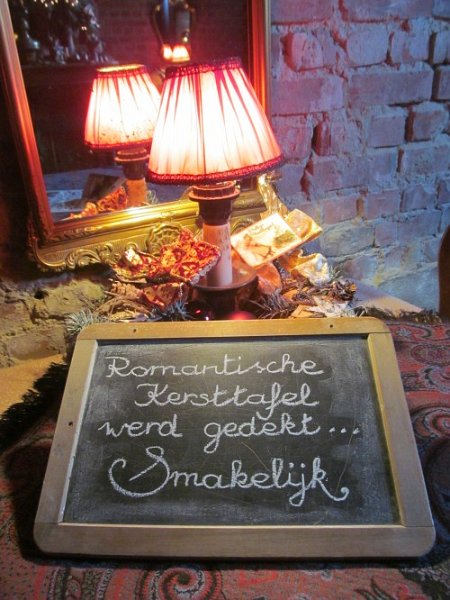 Romantische
Kersttafel
werd gedekt...
Smakelijk